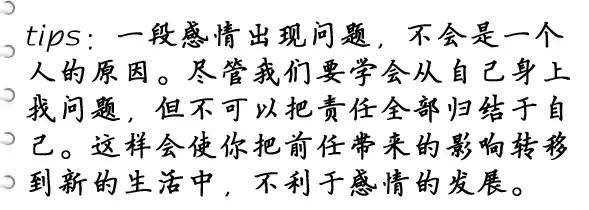 tips：一段感情出现问题，不会是一个
人的原因。尽管我们要学会从自己身上
找问题，但不可以把责任全部归结于自
己。这样会使你把前任带来的影响转移
到新的生活中，不利于感情的发展。